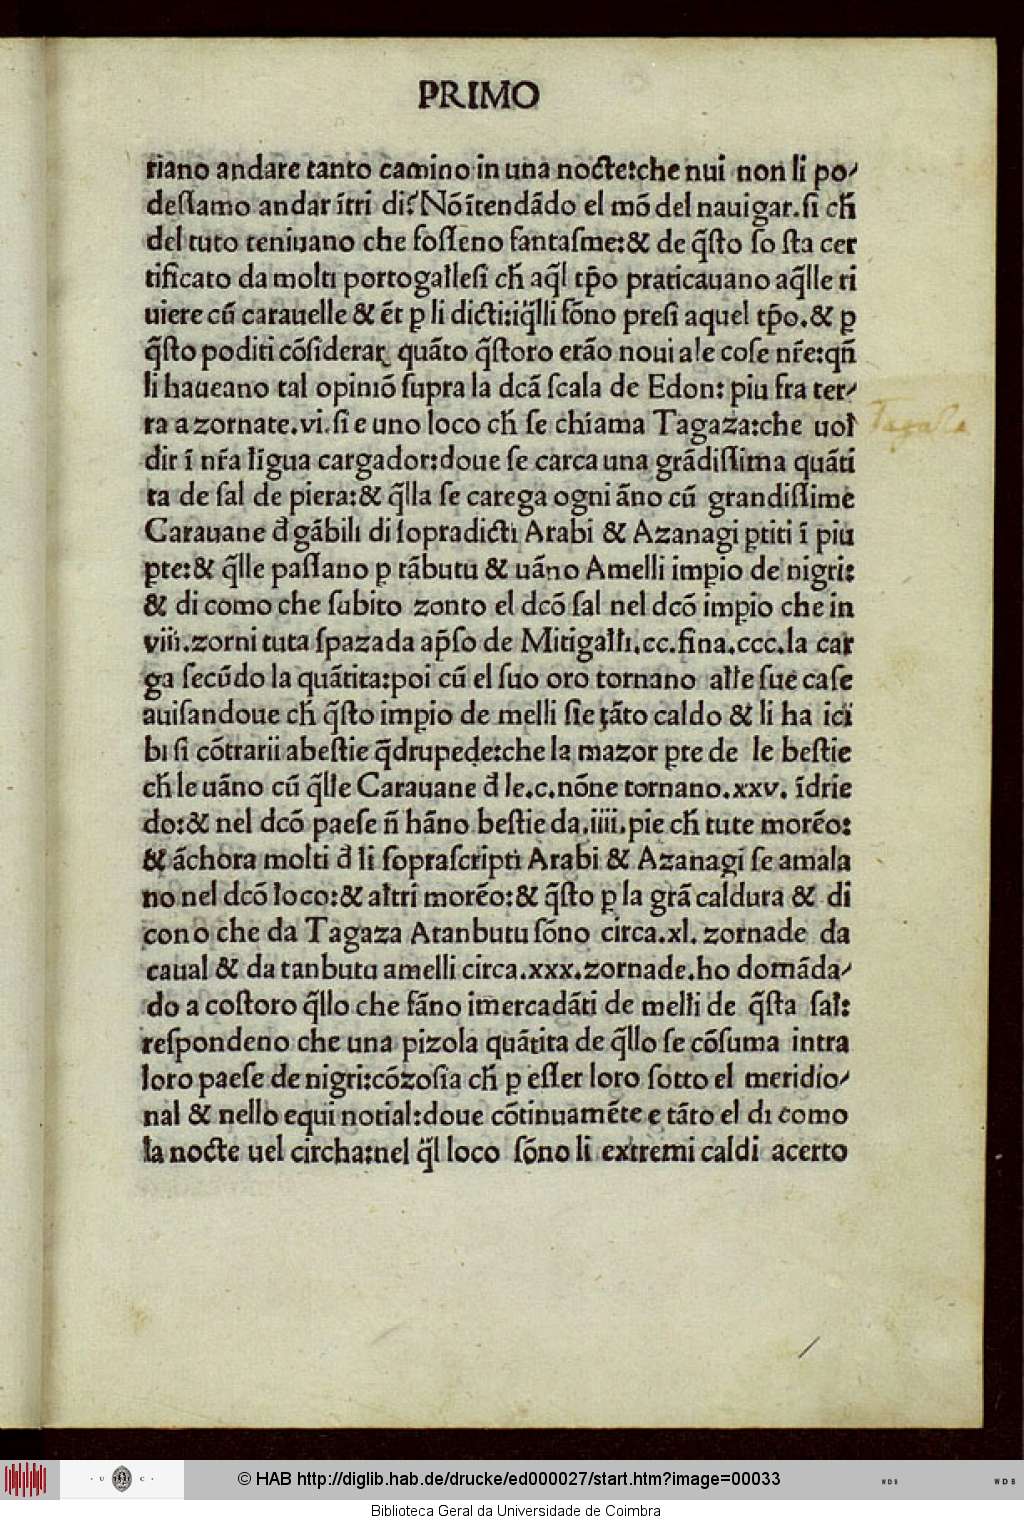 PRIMO
riano andare tanto camino in una nocte:che nui non li po/
deſſamo andar ĩtri di?Nõĩtendãdo el mõ del nauigar.ſi ch̃
del tuto teniuano che foſſeno fantaſme:& de q̃ſto ſo ſta cer
tificato da molti portogalleſi ch̃ aq̃l tp̃o praticauano aq̃lle ri
uiere cũ carauelle & ẽt ꝑ li dicti:iq̃lli ſõno preſi aquel tp̃o.& ꝑ
q̃ſto poditi cõſiderar quãto q̃ſtoro erão noui ale coſe nr̃e:qñ
li haueano tal opiniõ ſupra la dcã ſcala de Edon: piu fra ter/
ra a zornate.vi.ſi e uno loco ch̃ ſe chiama Tagaza:che uol
dir ĩ nr̃a lĩgua cargador:doue ſe carca una grãdiſſima quãti
ta de ſal de piera:& q̃lla ſe carega ogni ãno cũ grandiſſime
Carauane đ gãbili di ſopradicti Arabi & Azanagi ꝑtiti ĩ piu
ꝑte:& q̃lle paſſano ꝑ tãbutu & uãno Amelli imꝑio de nigri:
& di como che ſubito zonto el dcõ ſal nel dcõ imꝑio che in
viii.zorni tuta ſpazada ap̃ſo de Mitigalli.cc.fina.ccc.la car
ga ſecũdo la quãtita:poi cũ el ſuo oro tornano alle ſue caſe
auiſandoue ch̃ q̃ſto imꝑio de melli ſie tãto caldo & li ha ici
bi ſi cõtrarii abeſtie q̃drupede:che la mazor ꝑte de le beſtie
ch̃ le uãno cũ q̃lle Carauane đ le.c.nõne tornano.xxv. ĩdrie
do:& nel dcõ paeſe ñ hãno beſtie da.iiii.pie ch̃ tute morẽo:
& ãchora molti đ li ſopraſcripti Arabi & Azanagi ſe amala
no nel dcõ loco:& altri morẽo:& q̃ſto ꝑ la grã caldura & di
cono che da Tagaza Atanbutu ſõno circa.xl. zornade da
caual & da tanbutu amelli circa.xxx.zornade.ho domãda/
do a coſtoro q̃llo che fãno imercadãti de melli de q̃ſta ſal:
reſpondeno che una pizola quãtita de q̃llo ſe cõſuma intra
loro paeſe de nigri:cõzoſia ch̃ ꝑ eſſer loro ſotto el meridio/
nal & nello equi notial:doue cõtinuamẽte e tãto el di como
la nocte uel circha:nel q̃l loco ſõno li extremi caldi acerto
Tagaza
© HAB http://diglib.hab.de/drucke/ed000027/start.htm?image=00033
WDB
WDB
Biblioteca Geral da Universidade de Coimbra